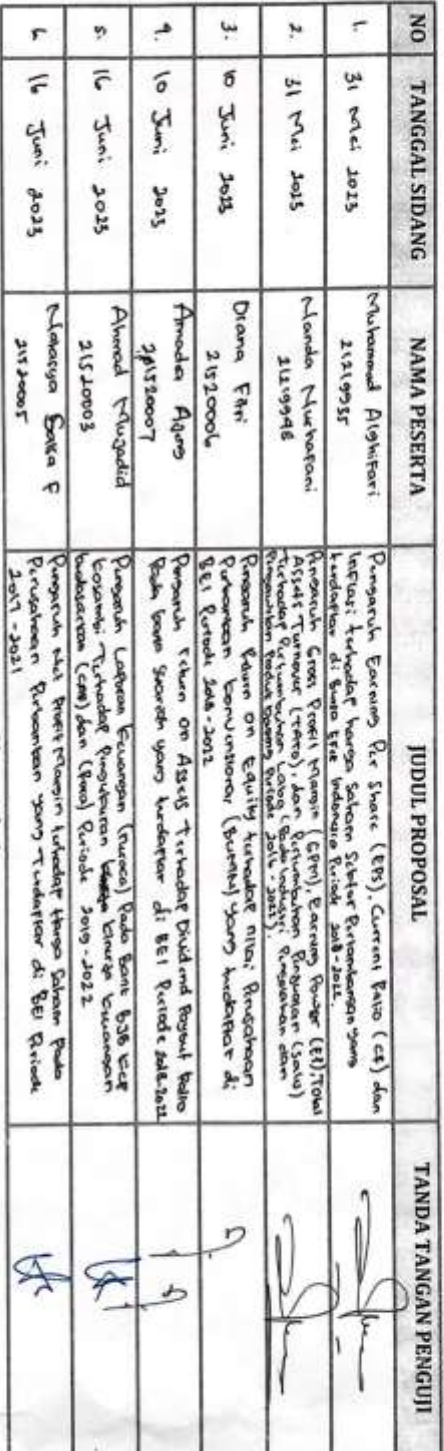 NO TANGGAL SIDANG NAMA PESERTA JUDUL PROPOSAL TANDA TANGAN PENGUJI
1. 31 Mei 2023 Muhammad Alghifari
21219935
Pengaruh Earning Per Share (EPS), Current Ratio (CR) dan
Inflasi terhadap harga saham Sektor Pertambangan yang
terdaftar di Bursa Efek Indonesia Periode 2018-2022.
2. 31 Mei 2023 Nanda Nurhapani
Pengaruh Gross Profit Margin (GPM), Earning Power (EP), Total
Assets Turnover (TATO), dan Pertumbuhan Penjualan (Sales)
Terhadap Pertumbuhan Laba (Pada Industri Pengolahan dan
Periode 2016 - 2022).
3. 10 Juni 2023 Diana Fitri
21520006
Pengaruh Return on Equity terhadap nilai Perusahaan
Perbankan konvensional (BUMN) yang terdaftar di
BEI Periode 2018-2022
4. 10 Juni 2023 Amadea Agung
21520007
Pengaruh return on Assets Terhadap Dividend Payout Ratio
Pada bank syariah yang terdaftar di BEI Periode 2018-2022
5. 16 Juni 2023 Ahmad Mujadid
21520003
Pengaruh Laporan Keuangan (neraca) Pada Bank BJB KCP
kosambi Terhadap Pengukuran kinerja keuangan
berdasarkan dan Periode 2019-2022
6. 16 Juni 2023 Natasya Salsa F
21520005
Pengaruh Net Profit Margin terhadap Harga Saham Pada
Perusahaan Perbankan yang Terdaftar di BEI Periode
2017 - 2021